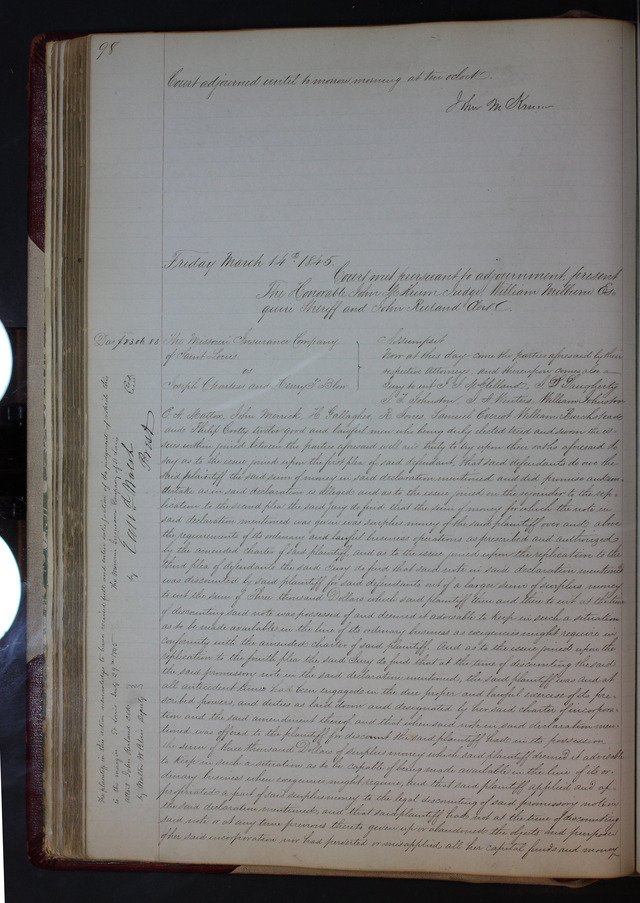 98
Court adjourned until tomorrow morning at ten oclock.
John M Krum
Friday March 14th 1845.
Court met pursuant to adjournment, present
The Honorable John M Krum Judge, William Milburn Es-
quire Sheriff and John Ruland Clerk.
The Missouri Insurance Company
of Saint Louis
vs
Joseph Charless and Henry T Blow
Assumpsit
Now at this day come the parties aforesaid by their
respective Attorneys, and thereupon comes also a
Jury to wit
J T Johnston, William Johnston
John Merrick, H Gallagher, Jones, Samuel Everist William Burkstead
and Philip Cotty twelve good and lawful men who being duly elected tried and sworn the is-
sues within joined between the parties aforesaid well and truly to try upon their oaths aforesaid do
say as to the issue joined upon the first plea of said defendant, that said defendants do owe the
said plaintiff the said sum of money in said declaration mentioned and did promise and un-
dertake as in said declaration is alleged and as to the issue joined on the rejoinder to the rep-
lication to the second plea the said jury do find that the sum of money for which the note in
said declaration mentioned was given was surplus money of the said plaintiff over and above
the requirements of its ordinary and lawful business operations as prescribed and authorized
by the amended charter of said plaintiff, and as to the issue joined upon the replication to the
third plea of defendants the said Jury do find that said note in said declaration mentioned
was discounted by said plaintiff for said defendants out of a larger sum of surplus money
to wit the sum of three thousand Dollars which said plaintiff then and there to wit at the time
of discounting said note was possessed of and deemed it advisable to keep in such a situation
as to be made available in the line of its ordinary business as exigencies might require in
conformity with the amended charter of said plaintiff. And as to the issue joined upon the
replication to the fourth plea the said Jury do find that at the time of discounting the said
the said promissory note in the said declaration mentioned, the said plaintiff was and at
all antecedent times had been engaged in the due proper and lawful exercise of its pre-
scribed powers, and duties as laid down and designated by her said charter of incorpora-
tion and the said amendment thereof, and that when said note in said declaration men-
tioned was offered to the plaintiff for discount the said plaintiff had in its possession
the sum of three thousand Dollars of surplus money which said plaintiff deemed it advisable
to keep in such a situation as to be capable of being made available in the line of its or-
dinary business when exigencies might require, And that said plaintiff applied and ap-
propriated a part of said surplus money to the legal discounting of said promissory note in
the said declaration mentioned, and that said plaintiff had not at the time of discounting
said note or at any time previous thereto given up or abandoned the objects and purposes
of her said incorporation nor had perverted or misapplied all her capital funds and money
The plaintiff in this action acknowledges to have received full and entire satisfaction of the judgment, of which this
is the margin. St Louis July 29th 1845
the Missouri Insurance Company of St Louis
by
Prest
attest John Ruland clerk
by